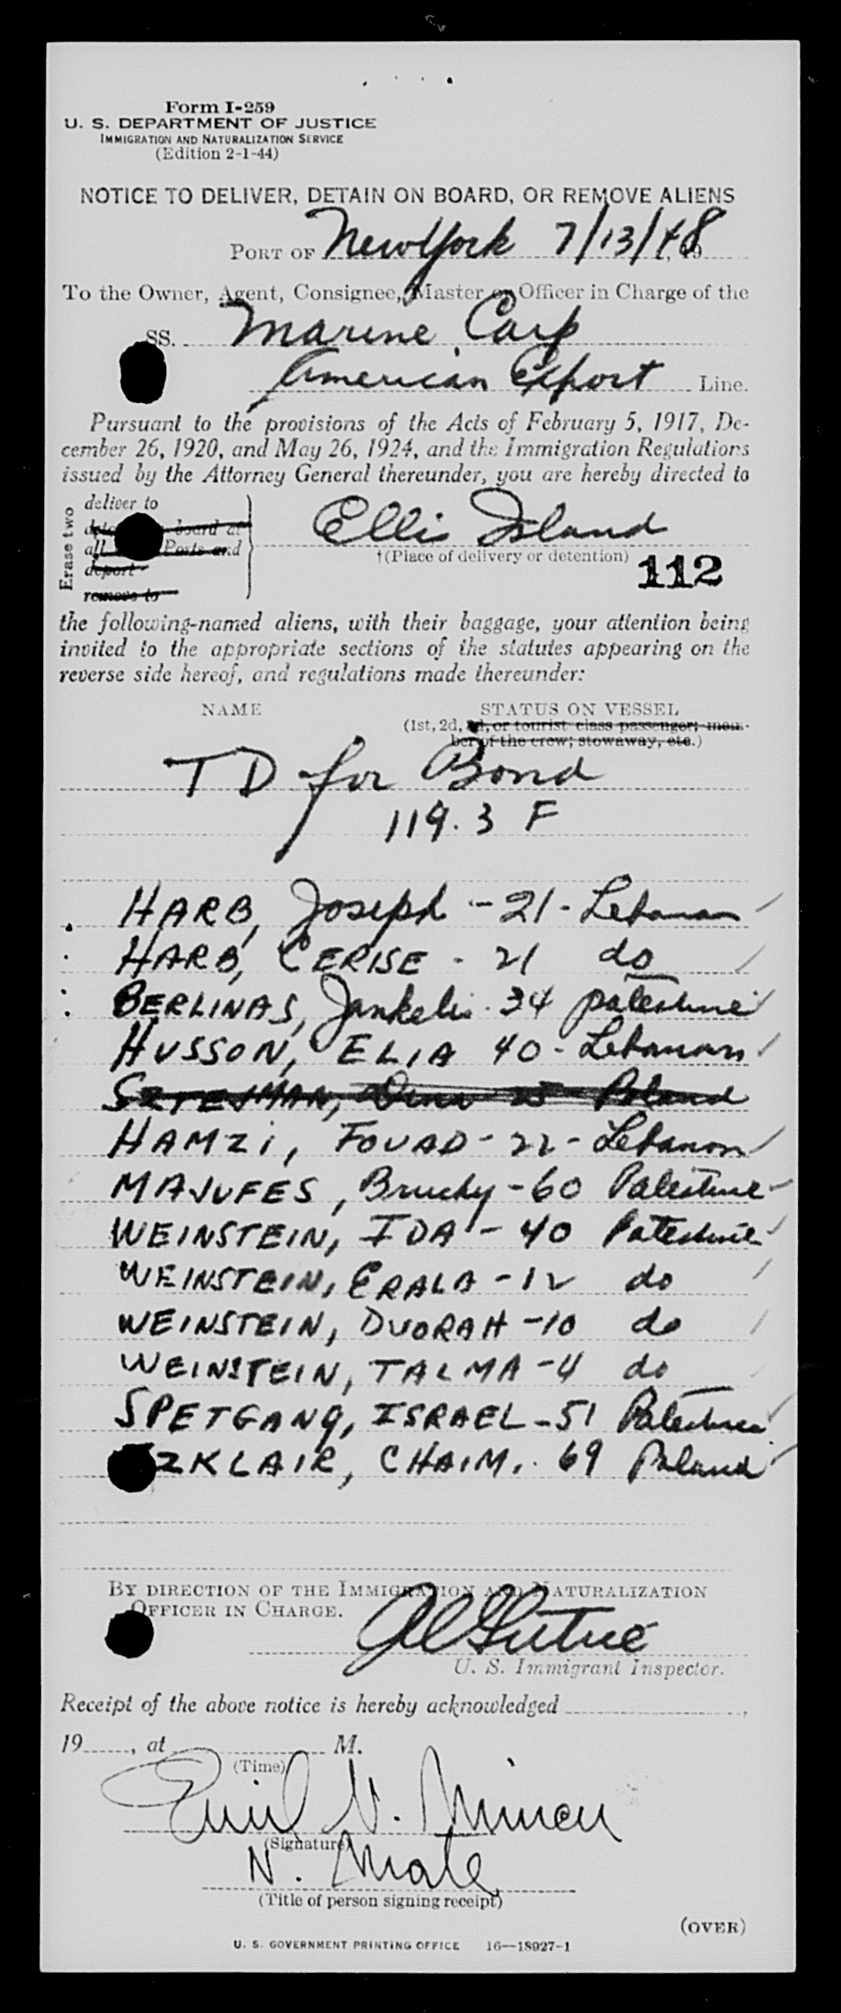 Form I-259
U. S. DEPARTMENT OF JUSTICE
IMMIGRATION AND NATURALIZATION SERVICE
(Edition 2-1-44)
NOTICE TO DELIVER, DETAIN ON BOARD, OR REMOVE ALIENS
PORT OF New York 7/13/48
To the Owner, Agent, Consignee, Master or Officer in Charge of the
SS. Marine Carp
American Export Line.
Pursuant to the provisions of the Acts of February 5, 1917, De-
cember 26, 1920, and May 26, 1924, and the Immigration Regulations
issued by the Attorney General thereunder, you are hereby directed to
Erase two
deliver to
board at
all Ports and
deport
remove to
Ellis Island
†(Place of delivery or detention)
112
the following-named aliens, with their baggage, your attention being
invited to the appropriate sections of the statutes appearing on the
reverse side hereof, and regulations made thereunder:
NAME STATUS ON VESSEL
(1st, 2d, 3d, or tourist class passenger; mem-
ber of the crew; stowaway, etc.)
TD for Bond
119.3 F
HARB, Joseph - 21 - Lebanon
HARB, CERISE - 21 do
BERLINAS, Jankelis - 34 Palestine
HUSSON, ELIA 40 - Lebanon
Poland
HAMZI, FOUAD - 22 - Lebanon
MAJUFES, Bruchy - 60 Palestine
WEINSTEIN, IDA - 40 Palestine
WEINSTEIN, ERALA - 12 do
WEINSTEIN, DVORAH - 10 do
WEINSTEIN, TALMA - 4 do
SPETGANG, ISRAEL - 51 Palestine
ZKLAIR, CHAIM. 69 Poland
BY DIRECTION OF THE IMMIGRATION AND NATURALIZATION
OFFICER IN CHARGE.
U. S. Immigrant Inspector.
Receipt of the above notice is hereby acknowledged
19 , at M.
(Time)
Emil N.
(Signature)
N. Mate
(Title of person signing receipt)
(OVER)
U. S. GOVERNMENT PRINTING OFFICE 16—18027-1